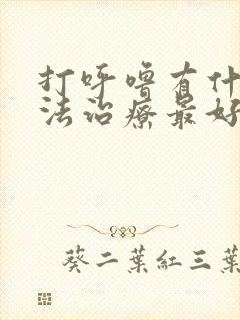 打呼噜有什
法治疗最好
葵二葉紅三葉